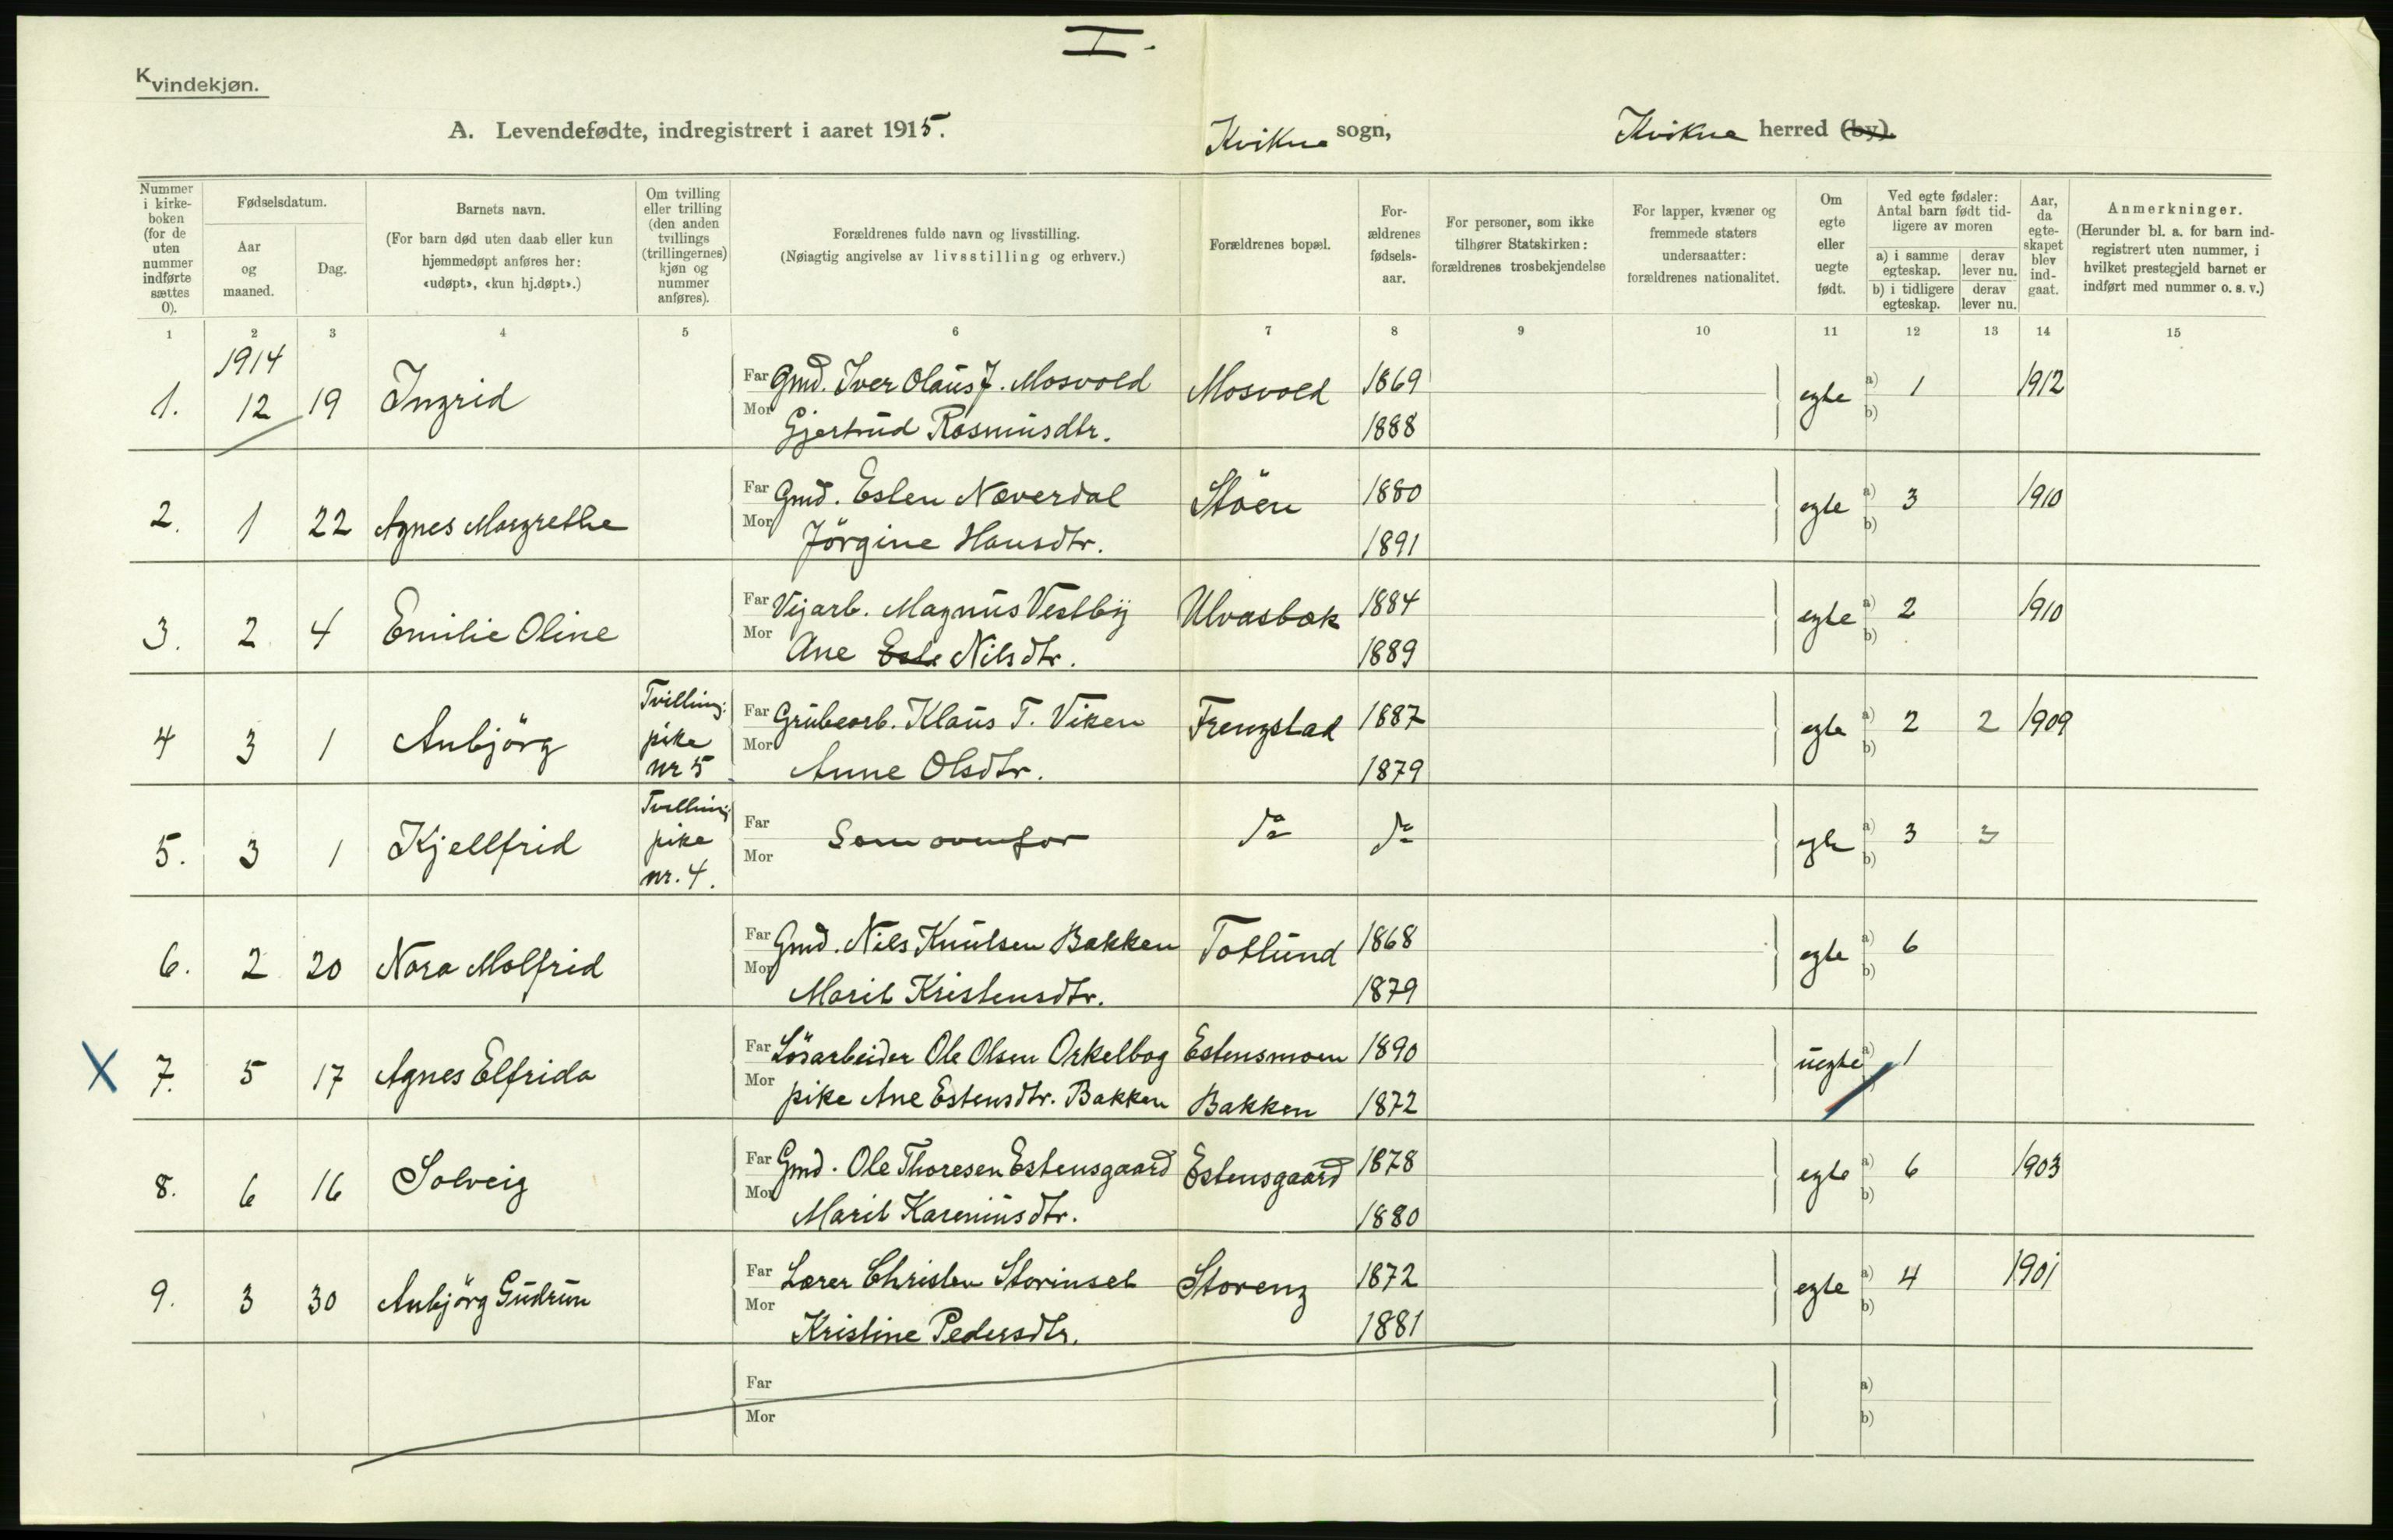 I.
Kvindekjøn.
A. Levendefødte, indregistrert i aaret 1915. Kvikne sogn, Kvikne herred (by)
Nummer i kirkeboken (for de uten nummer indførte sættes 0).
Fødselsdatum.
Aar og maaned.
Dag.
Barnets navn.
(For barn død uten daab eller kun hjemmedøpt anføres her: «udøpt», «kun hj.døpt».)
Om tvilling eller trilling (den anden tvillings (trillingernes) kjøn og nummer anføres).
Forældrenes fulde navn og livsstilling.
(Nøiagtig angivelse av livsstilling og erhverv.)
Forældrenes bopæl.
Forældrenes fødselsaar.
For personer, som ikke tilhører Statskirken: forældrenes trosbekjendelse
For lapper, kvæner og fremmede staters undersaatter: forældrenes nationalitet.
Om egte eller uegte født.
Ved egte fødsler: Antal barn født tidligere av moren
a) i samme egteskap. derav lever nu.
b) i tidligere egteskap. derav lever nu.
Aar, da egteskapet blev indgaat.
Anmerkninger.
(Herunder bl. a. for barn indregistrert uten nummer, i hvilket prestegjeld barnet er indført med nummer o. s. v.)
1 2 3 4 5 6 7 8 9 10 11 12 13 14 15
1914
1. 12 19 Ingrid Far Gmd. Iver Olaus J. Mosvold Mosvold 1869 egte a) 1 1912
Mor Gjertrud Rasmusdtr. 1888 b)
2. 1 22 Agnes Margrethe Far Gmd. Esten Næverdal Støen 1880 egte a) 3 1910
Mor Jörgine Hansdtr. 1891 b)
3. 2 4 Emilie Oline Far Vejarb. Magnus Vestby Ulvasbak 1884 egte a) 2 1910
Mor Ane Este Nilsdtr. 1889 b)
4 3 1 Anbjörg Tvilling: pike nr 5 Far Grubearb. Klaus T. Viken Frengstad 1887 egte a) 2 2 1909
Mor Anne Olsdtr. 1879 b)
5. 3 1 Kjellfrid Tvilling: pike nr. 4. Far Som ovenfor do do egte a) 3 3
Mor b)
6. 2 20 Nora Molfrid Far Gmd. Nils Knutsen Bakken Totlund 1868 egte a) 6
Mor Marit Kristensdtr. 1879 b)
X 7. 5 17 Agnes Elfrida Far Lösarbeider Ole Olsen Orkelbog Estensmoen 1890 uegte a) 1
Mor pike Ane Estensdtr. Bakken Bakken 1872
8. 6 16 Solveig Far Gmd. Ole Thoresen Estensgaard Estensgaard 1878 egte a) 6 1903
Mor Marit Kareniusdtr. 1880 b)
9. 3 30 Anbjörg Gudrun Far Lærer Christen Storinset Storeng 1872 egte a) 4 1901
Mor Kristine Pedersdtr. 1881 b)
Far a)
Mor b)